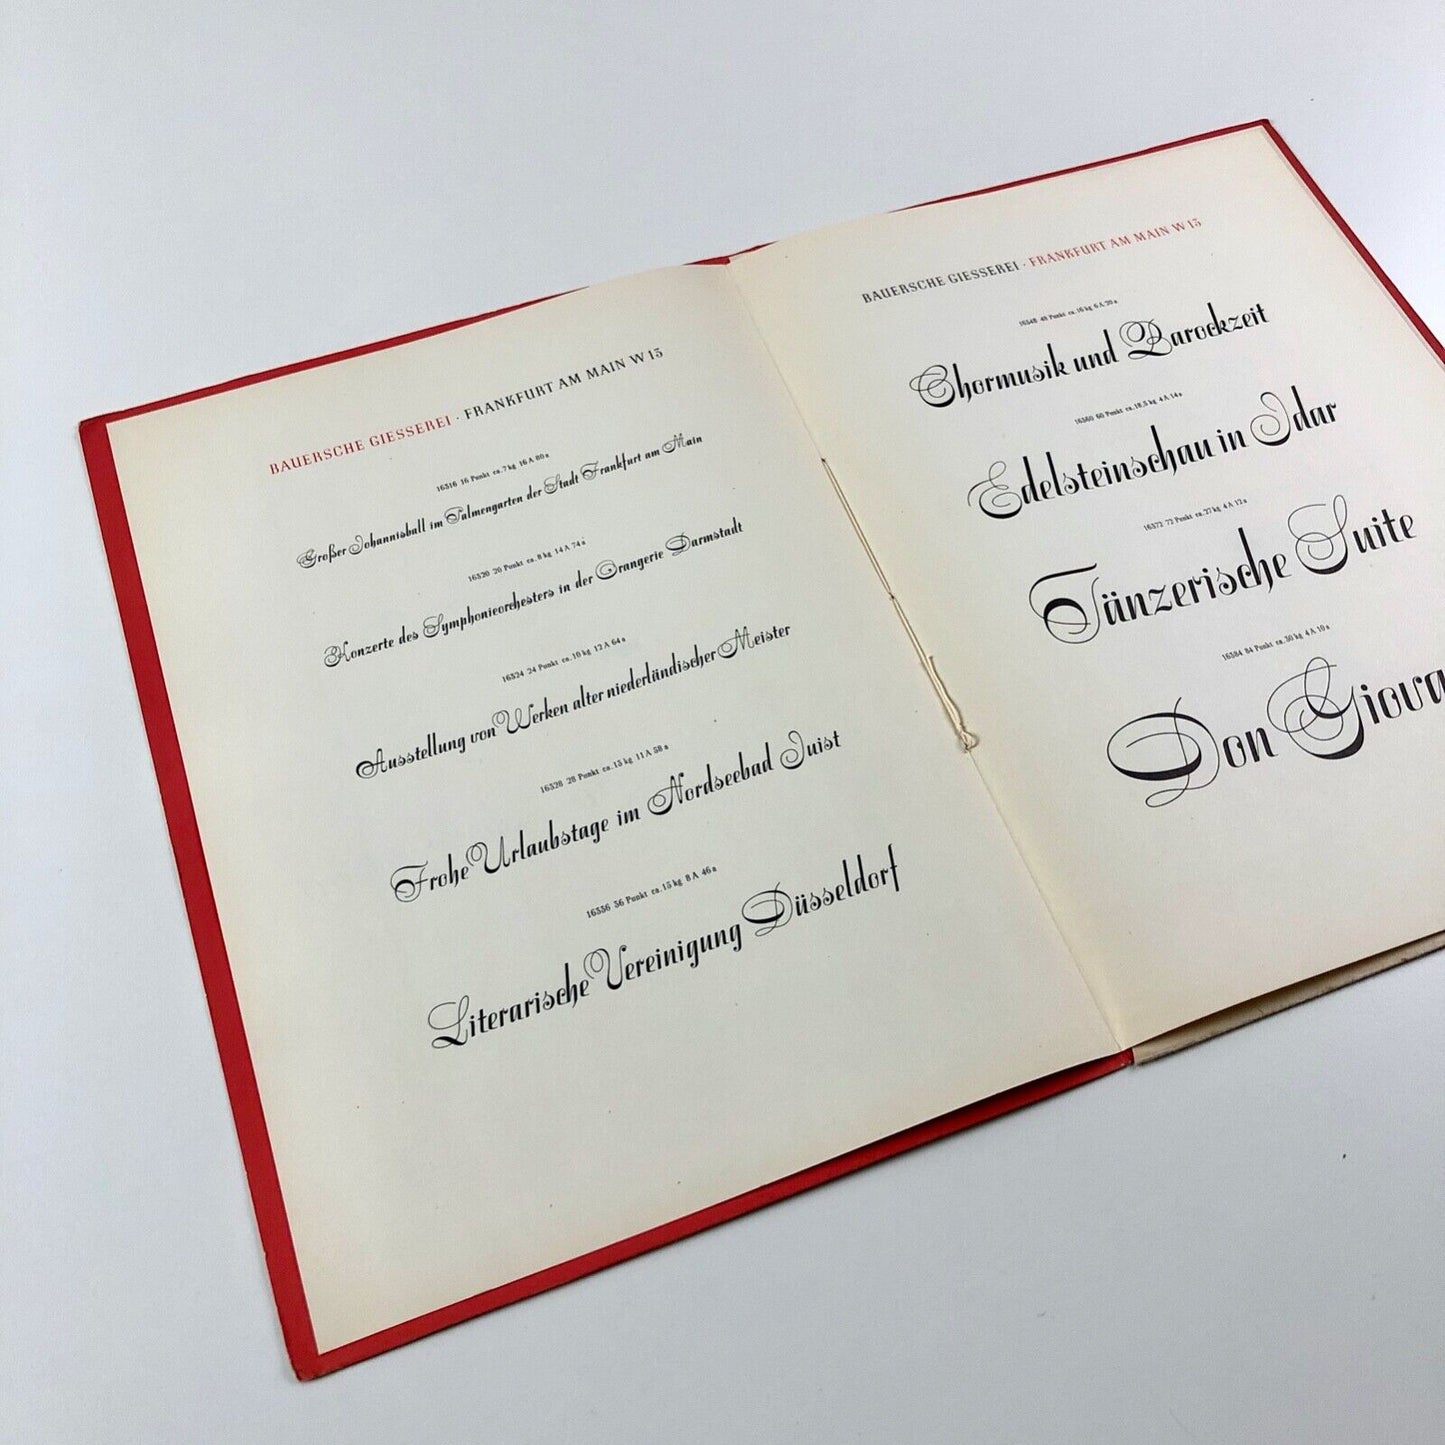 BAUERSCHE GIESSEREI · FRANKFURT AM MAIN W 13
16316 16 Punkt ca. 7 kg 16 A 80 a
Großer Johannisball im Palmengarten der Stadt Frankfurt am Main
16320 20 Punkt ca. 8 kg 14 A 74 a
Konzerte des Symphonieorchesters in der Orangerie Darmstadt
16324 24 Punkt ca. 10 kg 12 A 64 a
Ausstellung von Werken alter niederländischer Meister
16328 28 Punkt ca. 13 kg 11 A 58 a
Frohe Urlaubstage im Nordseebad Juist
16336 36 Punkt ca. 15 kg 8 A 46 a
Literarische Vereinigung Düsseldorf
BAUERSCHE GIESSEREI · FRANKFURT AM MAIN W 13
16348 48 Punkt ca. 16 kg 6 A 20 a
Chormusik und Barockzeit
16360 60 Punkt ca. 18,5 kg 4 A 14 a
Edelsteinschau in Idar
16372 72 Punkt ca. 27 kg 4 A 12 a
Tänzerische Suite
16384 84 Punkt ca. 30 kg 4 A 10 a
Don Giova